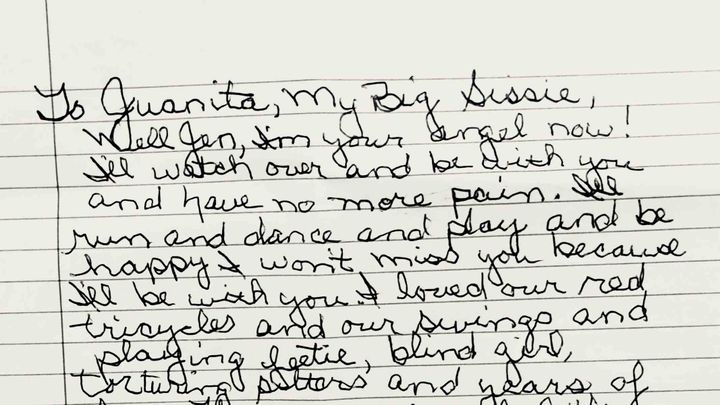 To Juanita, My Big Sissie,
Well Jen, I'm your angel now!
I'll watch over and be with you
and have no more pain. I'll
run and dance and play and be
happy I won't miss you because
I'll be with you. I loved our red
tricycles and our swings and
playing blind girl,
torturing and years of